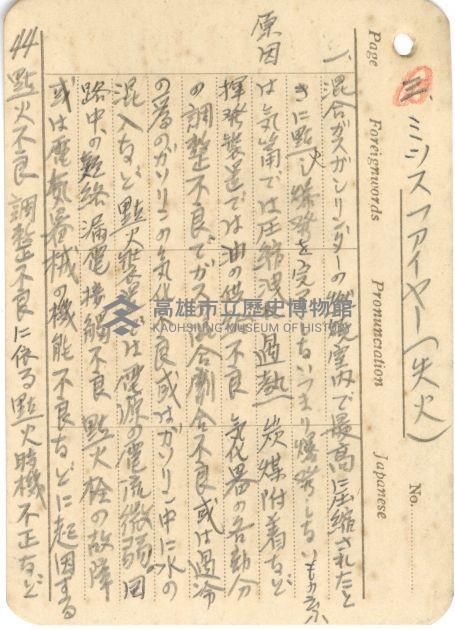 三、ミッスファイヤー(失火)
No.
Page Foreignwords Pronunciation Japanese
一、混合ガスガシリンダーの燃焼室内で最高に圧縮されたと
きに點火爆発を完 ないつまり爆発しないもの
原因
は気筒では圧縮洩 過熱 炭煤附着など
揮発装置では油の供給不良 気化器の各部分
の調整不良でガス 混合割合不良或は過冷
の為のガソリンの気化不良或はガソリン中に水の
混入など 點火装置では電源の電流微弱 回
路中の短絡漏電接觸不良 點火栓の故障
或は電気器械の機能不良などに起因する
44 點火不良 調整不良に依る點火時機不正など
高雄市立歷史博物館
KAOHSIUNG MUSEUM OF HISTORY